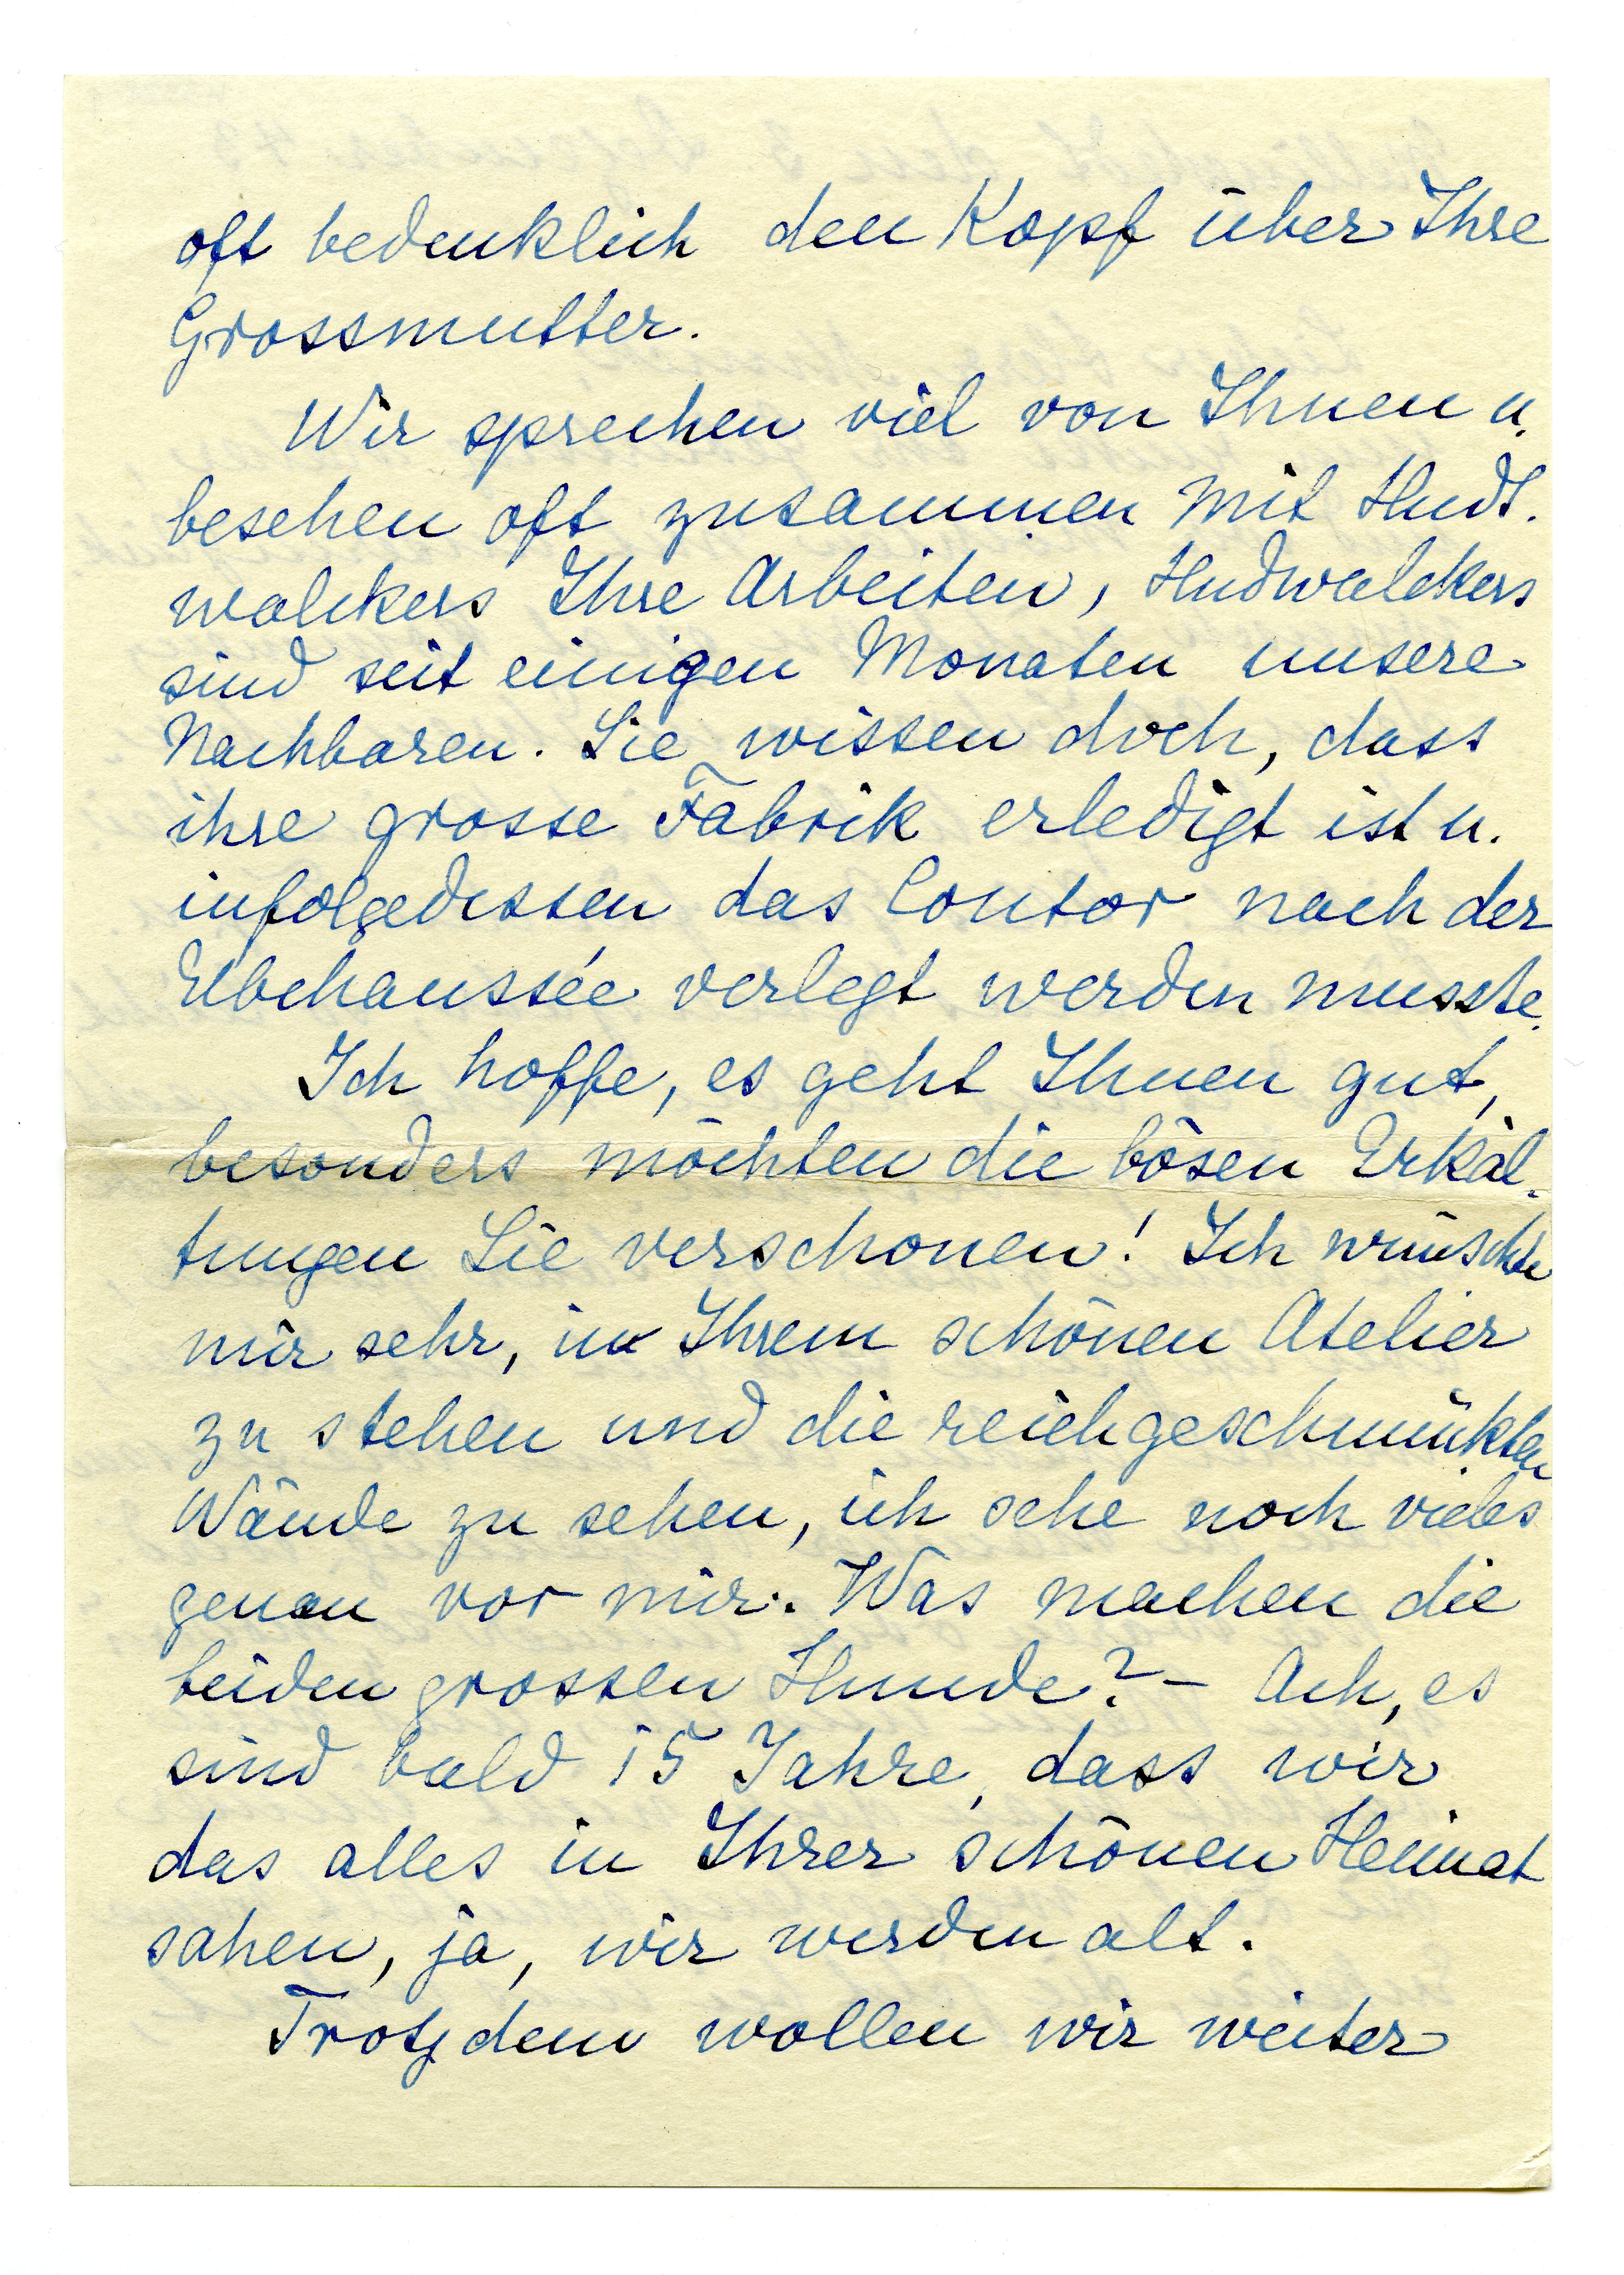 oft bedenklich den Kopf über Ihre
Grossmutter.
Wir sprechen viel von Ihnen u.
besehen oft zusammen mit Hudt.
walckers Ihre Arbeiten, Hudwalckers
sind seit einigen Monaten unsere
Nachbaren. Sie wissen doch, dass
ihre grosse Fabrik erledigt ist u.
infolgedessen das Contor nach der
Elbchaussée verlegt werden musste.
Ich hoffe, es geht Ihnen gut,
besonders möchten die bösen Erkäl-
tungen Sie verschonen! Ich wünschte
mir sehr, in Ihrem schönen Atelier
zu stehen und die reichgeschmückten
Wände zu sehen, ich sehe noch vieles
genau vor mir. Was machen die
beiden grossen Hunde? - Ach, es
sind bald 15 Jahre, dass wir
das alles in Ihrer schönen Heimat
sahen, ja, wir werden alt.
Trotzdem wollen wir weiter